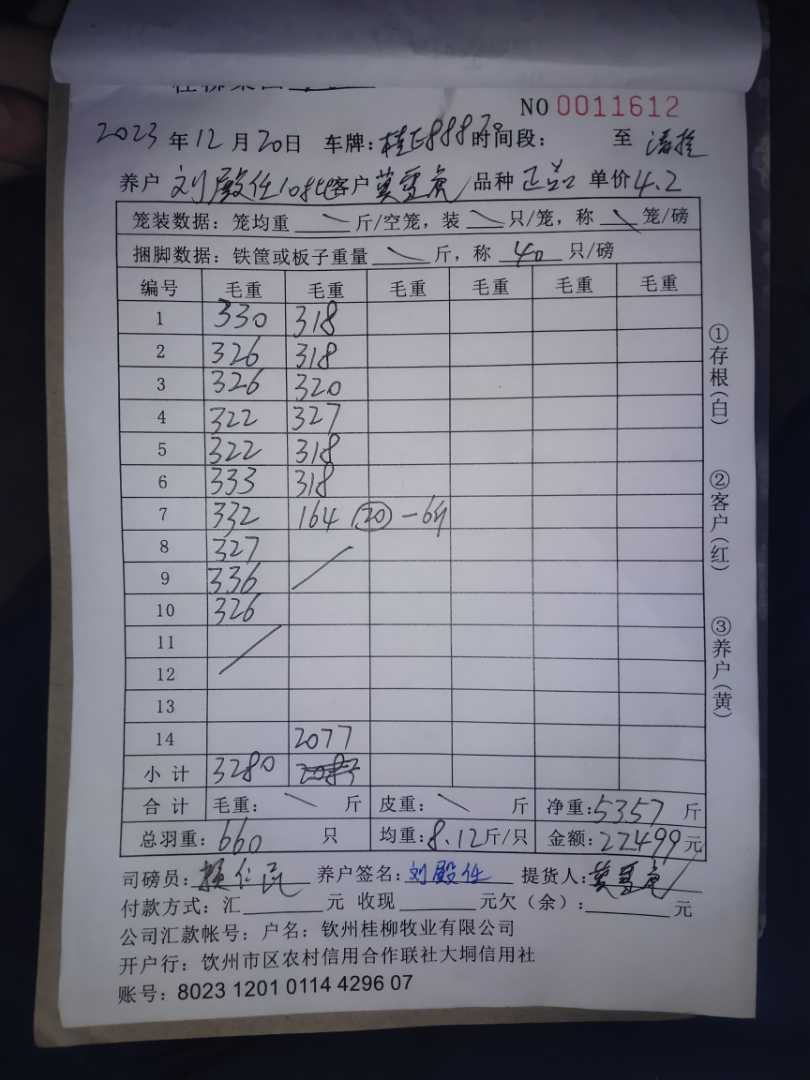 NO 0011612
2023 年 12 月 20 日 车牌: 桂 888 时间段: 至
养户 刘殿任 10批 客户 莫雪 品种 正品 单价 4.2
笼装数据: 笼均重 斤/空笼, 装 只/笼, 称 笼/磅
捆脚数据: 铁筐或板子重量 斤, 称 40 只/磅
编号 毛重 毛重 毛重 毛重 毛重 毛重
1 330 318
2 326 318
3 326 320
4 322 327
5 322 318
6 333 318
7 332 164 20 -6斤
8 327
9 336
10 326
11
12
13
14 2077
小计 3280
合计 毛重: 斤 皮重: 斤 净重: 5357 斤
总羽重: 660 只 均重: 8.12 斤/只 金额: 22499 元
司磅员: 养户签名: 刘殿任 提货人: 莫雪
付款方式: 汇 元 收现 元欠(余): 元
公司汇款帐号: 户名: 钦州桂柳牧业有限公司
开户行: 饮州市区农村信用合作联社大垌信用社
账号: 8023 1201 0114 4296 07
①存根(白)
②客户(红)
③养户(黄)